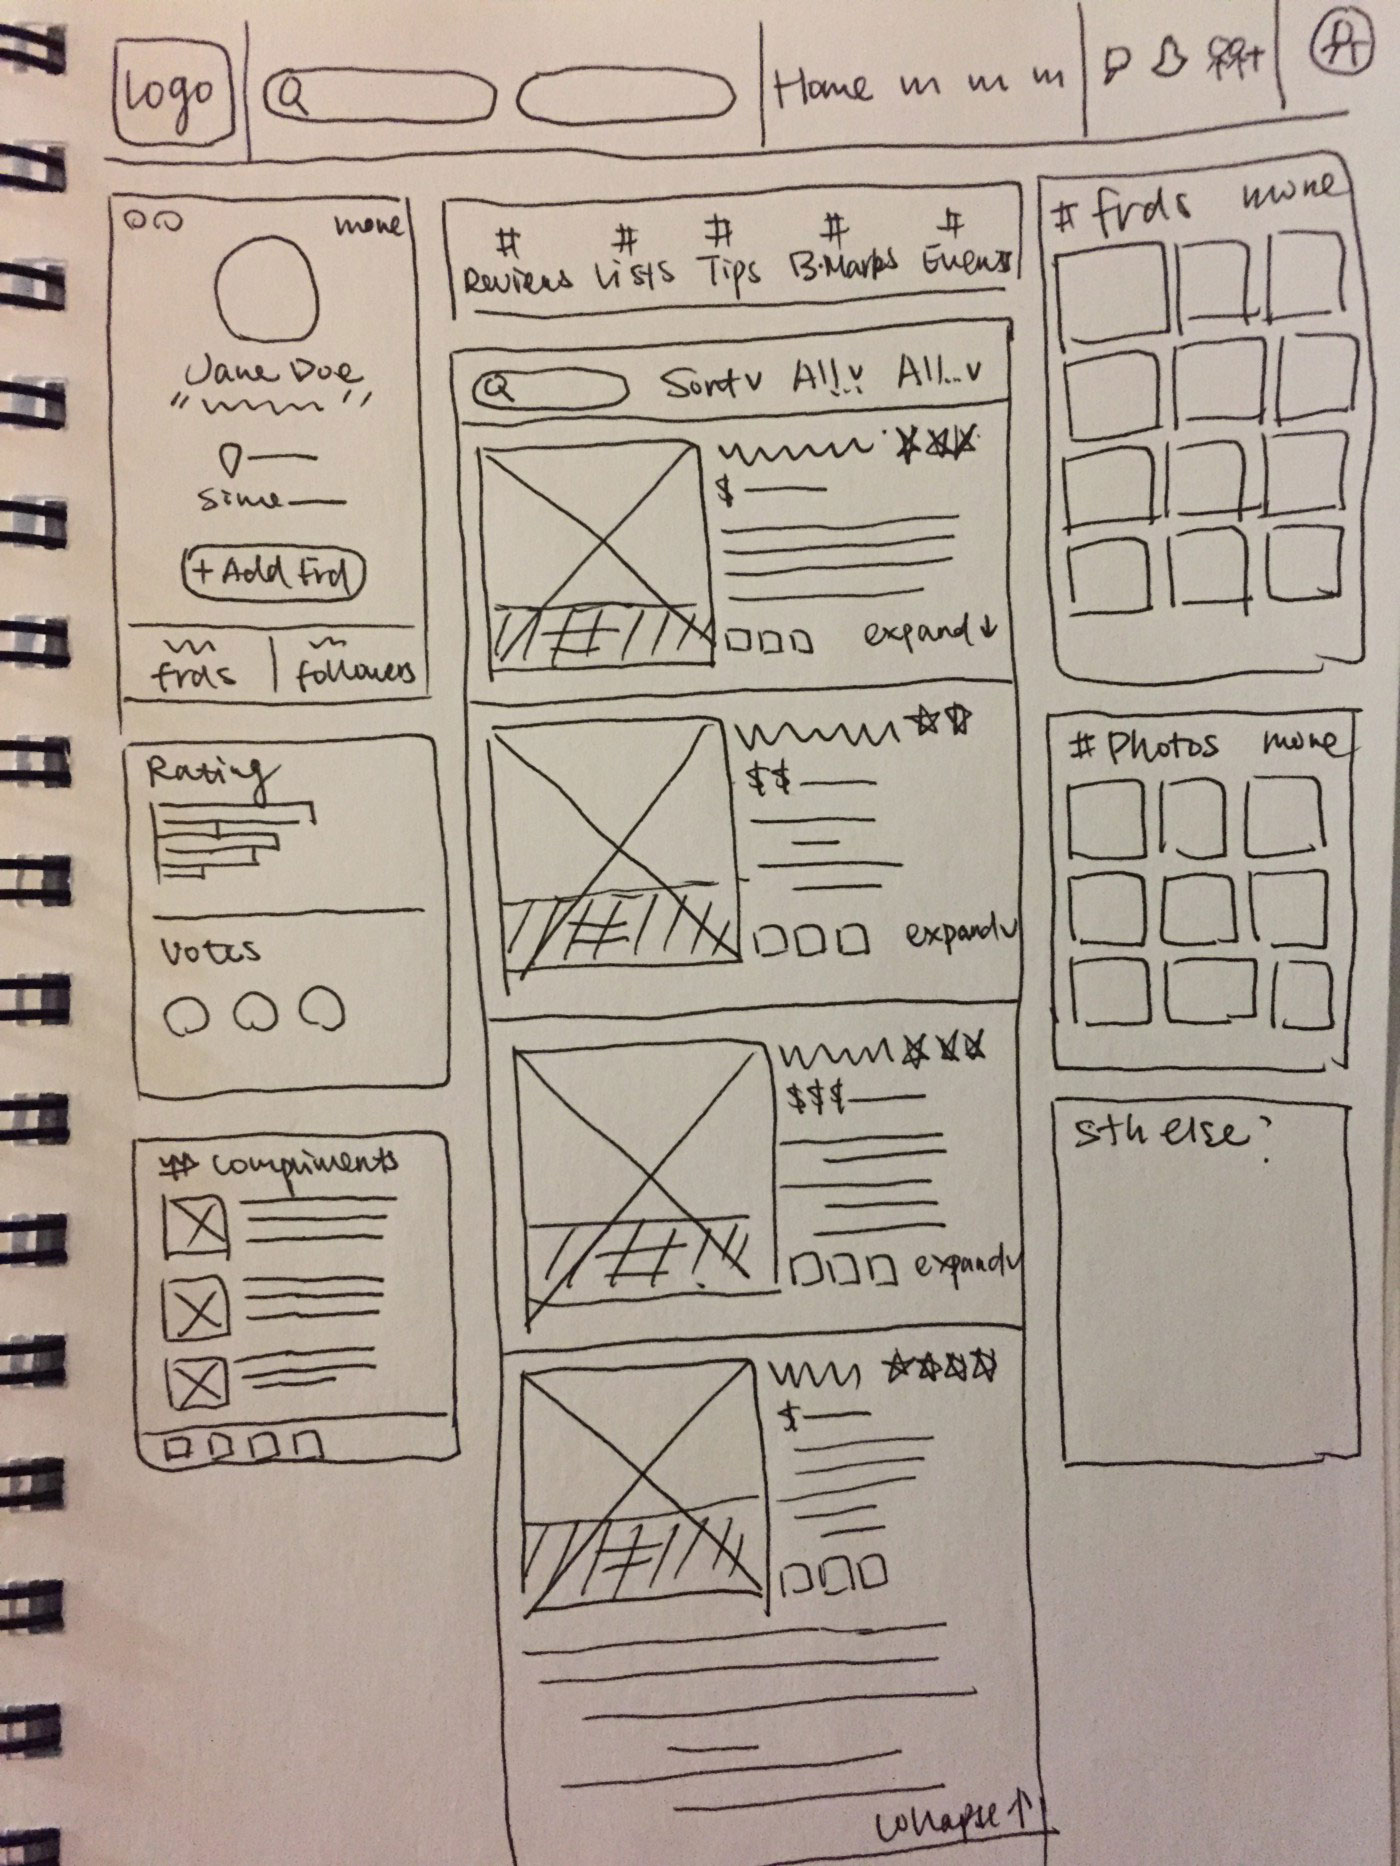 Logo
Home
more
Jane Doe
"
"
Since
+ Add Frd
frds
followers
Rating
Votes
# Compliments
# # # # #
Reviews Lists Tips B.Marks Events
Sort v All... v All... v
$
expand ↓
#
$$
expand v
#
$$$
expand v
#
$
#
collapse ↑
# frds more
# Photos more
sth else?